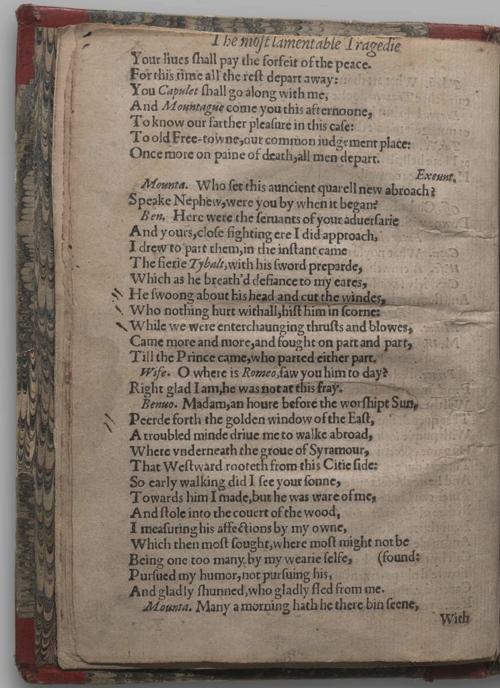 The most lamentable Tragedie
Your liues ſhall pay the forfeit of the peace.
For this time all the reſt depart away:
You Capulet ſhall go along with me,
And Mountague come you this afternoone,
To know our farther pleaſure in this caſe:
To old Free-towne, our common iudgement place:
Once more on paine of death, all men depart.
Exeunt.
Mounta. Who ſet this auncient quarell new abroach?
Speake Nephew, were you by when it began?
Ben. Here were the ſeruants of your aduerſarie
And yours, cloſe fighting ere I did approach,
I drew to part them, in the inſtant came
The fierie Tybalt, with his ſword preparde,
Which as he breath'd defiance to my eares,
He ſwoong about his head and cut the windes,
Who nothing hurt withall, hiſt him in ſcorne:
While we were enterchaunging thruſts and blowes,
Came more and more, and fought on part and part,
Till the Prince came, who parted either part.
Wife. O where is Romeo, ſaw you him to day?
Right glad I am, he was not at this fray.
Benuo. Madam, an houre before the worſhipt Sun,
Peerde forth the golden window of the Eaſt,
A troubled minde driue me to walke abroad,
Where vnderneath the groue of Syramour,
That Weſtward rooteth from this Citie ſide:
So early walking did I ſee your ſonne,
Towards him I made, but he was ware of me,
And ſtole into the couert of the wood,
I meaſuring his affections by my owne,
Which then moſt ſought, where moſt might not be
Being one too many by my wearie ſelfe, (found:
Purſued my humor, not purſuing his,
And gladly ſhunned, who gladly fled from me.
Mounta. Many a morning hath he there bin ſeene,
With